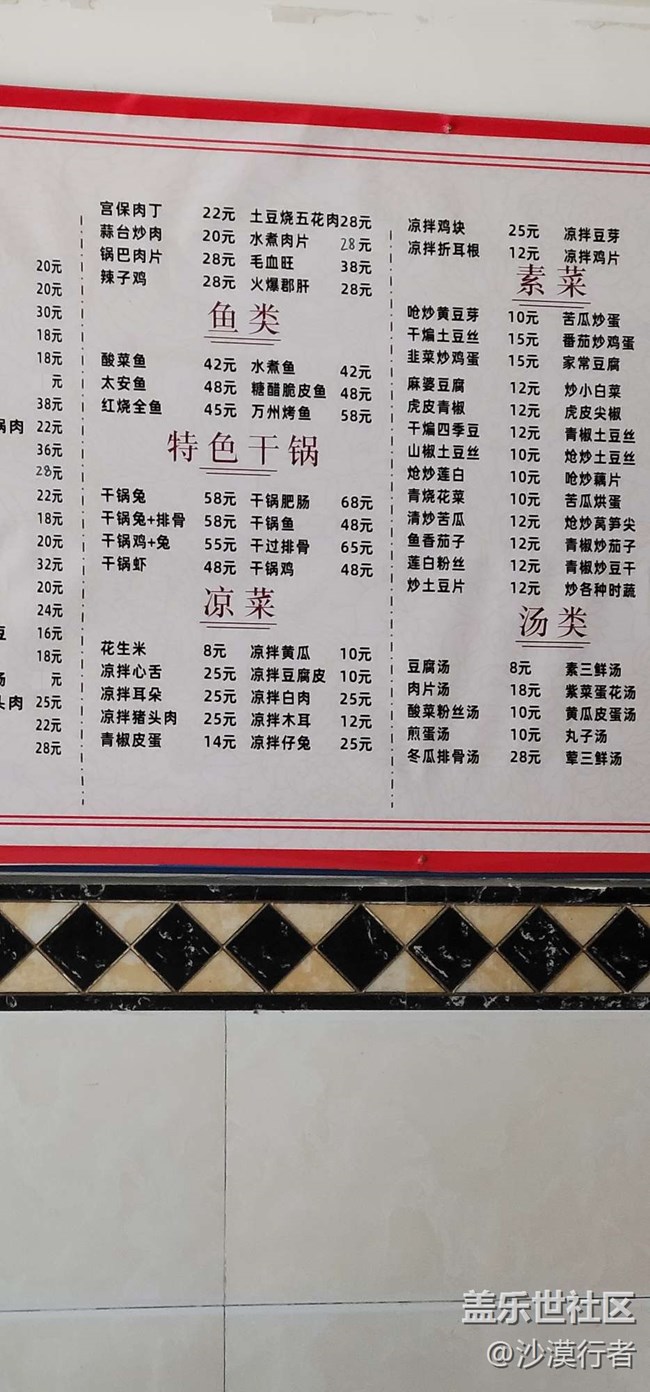 20元
20元
30元
18元
18元
元
38元
锅肉 22元
36元
28元
22元
18元
20元
32元
20元
24元
豆 16元
18元
汤 元
头肉 25元
22元
28元
宫保肉丁 22元 土豆烧五花肉 28元
蒜台炒肉 20元 水煮肉片 28元
锅巴肉片 28元 毛血旺 38元
辣子鸡 28元 火爆郡肝 28元
鱼类
酸菜鱼 42元 水煮鱼 42元
太安鱼 48元 糖醋脆皮鱼 48元
红烧全鱼 45元 万州烤鱼 58元
特色干锅
干锅兔 58元 干锅肥肠 68元
干锅兔+排骨 58元 干锅鱼 48元
干锅鸡+兔 55元 干过排骨 65元
干锅虾 48元 干锅鸡 48元
凉菜
花生米 8元 凉拌黄瓜 10元
凉拌心舌 25元 凉拌豆腐皮 10元
凉拌耳朵 25元 凉拌白肉 25元
凉拌猪头肉 25元 凉拌木耳 12元
青椒皮蛋 14元 凉拌仔兔 25元
凉拌鸡块 25元 凉拌豆芽
凉拌折耳根 12元 凉拌鸡片
素菜
呛炒黄豆芽 10元 苦瓜炒蛋
干煸土豆丝 15元 番茄炒鸡蛋
韭菜炒鸡蛋 15元 家常豆腐
麻婆豆腐 12元 炒小白菜
虎皮青椒 12元 虎皮尖椒
干煸四季豆 12元 青椒土豆丝
山椒土豆丝 10元 炝炒土豆丝
炝炒莲白 10元 呛炒藕片
青烧花菜 10元 苦瓜烘蛋
清炒苦瓜 12元 炝炒莴笋尖
鱼香茄子 12元 青椒炒茄子
莲白粉丝 12元 青椒炒豆干
炒土豆片 12元 炒各种时蔬
汤类
豆腐汤 8元 素三鲜汤
肉片汤 18元 紫菜蛋花汤
酸菜粉丝汤 10元 黄瓜皮蛋汤
煎蛋汤 10元 丸子汤
冬瓜排骨汤 28元 荤三鲜汤
盖乐世社区
@沙漠行者